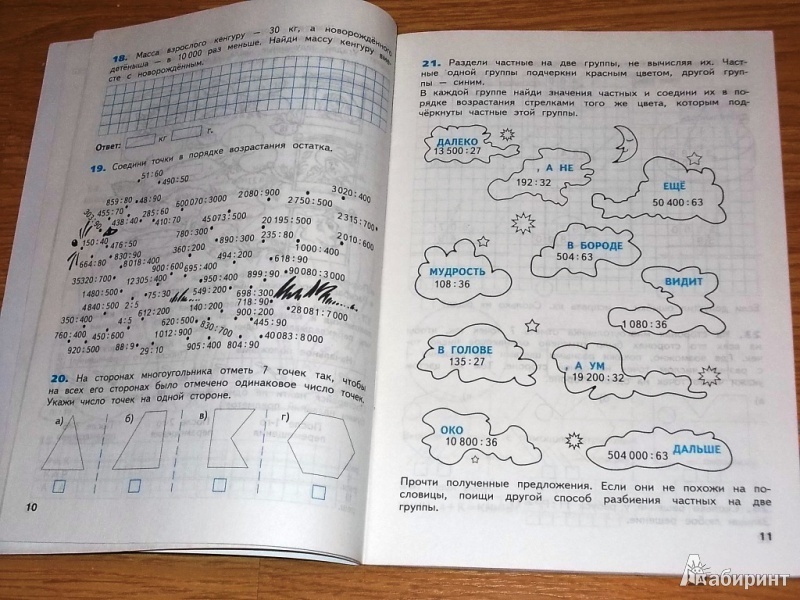 18. Масса взрослого кенгуру — 30 кг, а новорождённого
детёныша — в 10 000 раз меньше. Найди массу кенгуру вме-
сте с новорождённым.
Ответ: кг г.
19. Соедини точки в порядке возрастания остатка.
51:60
490:50
859:80 48:90
455:70 285:60 600 070:3000 2 080:900 3 020:400
438:40 410:70 45 073:500 2 750:500
780:300 20 195:500 2 315:700
150:40 476:50 890:300 235:80 2 010:600
830:90 360:200 494:200 1 000:400
664:80 8 018:400 618:90
900:600 695:400
35320:700 12305:400 950:400 899:90 90 080:3 000
1480:500 75:30 549:200 698:300
4840:500 2:5 612:200 140:200 718:90
350:400 4:5 620:500 900:200 28 081:7 000
760:400 450:600 1012:900 830:700 445:90
920:500 88:9 29:10 905:400 804:90 40 083:8 000
20. На сторонах многоугольника отметь 7 точек так, чтобы
на всех его сторонах было отмечено одинаковое число точек.
Укажи число точек на одной стороне.
а) б) в) г)
10
21. Раздели частные на две группы, не вычисляя их. Част-
ные одной группы подчеркни красным цветом, другой груп-
пы — синим.
В каждой группе найди значения частных и соедини их в по-
рядке возрастания стрелками того же цвета, которым под-
чёркнуты частные этой группы.
ДАЛЕКО
13 500:27
, А НЕ
192:32
ЕЩЁ
50 400:63
В БОРОДЕ
504:63
МУДРОСТЬ
108:36
ВИДИТ
1 080:36
В ГОЛОВЕ
135:27
, А УМ
19 200:32
ОКО
10 800:36
ДАЛЬШЕ
504 000:63
Прочти полученные предложения. Если они не похожи на по-
словицы, поищи другой способ разбиения частных на две
группы.
11
Лабиринт